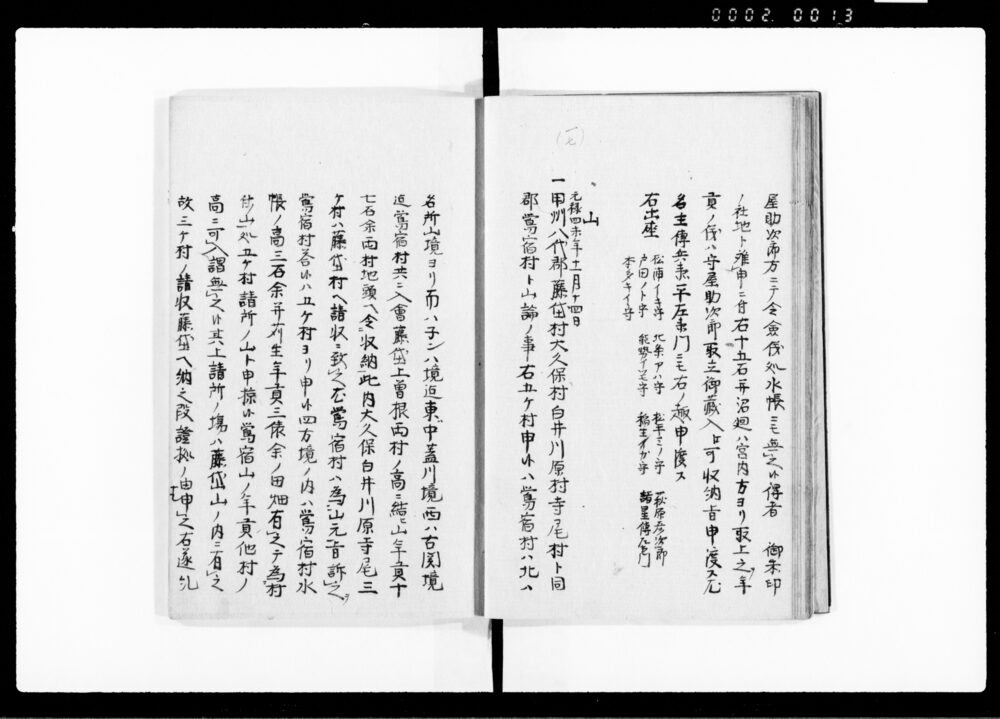 0002.0013
(一七)
屋助次郎方ニテ令僉議処水帳ニモ無之候得者 御朱印
ノ社地ト雖申ニ付右十五石并沼廻ハ宮内方ヨリ取上之年
貢ノ儀ハ守屋助次郎取立御蔵入ニ可収納旨申渡又
名主傳兵衛平左衛門ニモ右ノ趣申渡ス
右出座 松浦イキ守 北条アハ守 松平ミノ守 萩原彦次郎
戸田ノト守 能勢イツミ守 稲生 守 諸星傳左衛門
本多キイ守
元禄四未年十二月十四日
山
一甲州八代郡藤垈村大久保村白井川原村寺尾村ト同
郡鶯宿村ト山論ノ事右五ケ村申候ハ鶯宿村ハ北ハ
名所山境ヨリ南ハ子ンハ境迄東ハ中蓋川境西ハ古関境
迄鶯宿村共ニ入會藤垈上曽根両村ノ高ニ結ヒ山年貢十
七石余両村地頭ヘ令収納此内大久保白井川原寺尾三
ケ村ハ藤垈村ヘ請収ニ致之処鶯宿村ハ為山元旨訴之
鶯宿村答候ハ五ケ村ヨリ申候四方境ノ内ハ鶯宿村水
帳ノ高三石余并苅生年貢三俵余ノ田畑有之テ為村
付山処五ケ村請所ノ山ト申掠候鶯宿山ノ年貢他村ノ
高ニ可入謂無之候其上請所ノ場ハ藤垈山ノ内ニ有之
故三ケ村ノ請収藤垈ヘ納之段證拠ノ由申之右遂糺